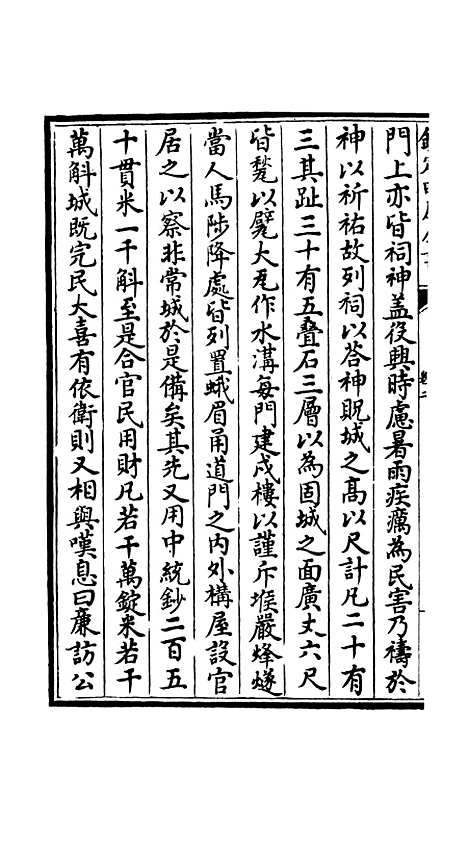 門上亦皆祠神盖役興時慮暑雨疾癘為民害乃禱於
神以祈祐故列祠以荅神貺城之髙以尺計凡二十有
三其趾三十有五叠石三層以為固城之面廣丈六尺
皆甃以甓大瓦作水溝每門建戍樓以謹斥堠嚴烽燧
當人馬陟降處皆列置蛾眉甬道門之内外構屋設官
居之以察非常城於是備矣其先又用中統鈔二百五
十貫米一千斛至是合官民用財凡若干萬錠米若干
萬斛城既完民大喜有依衛則又相與嘆息曰廉訪公